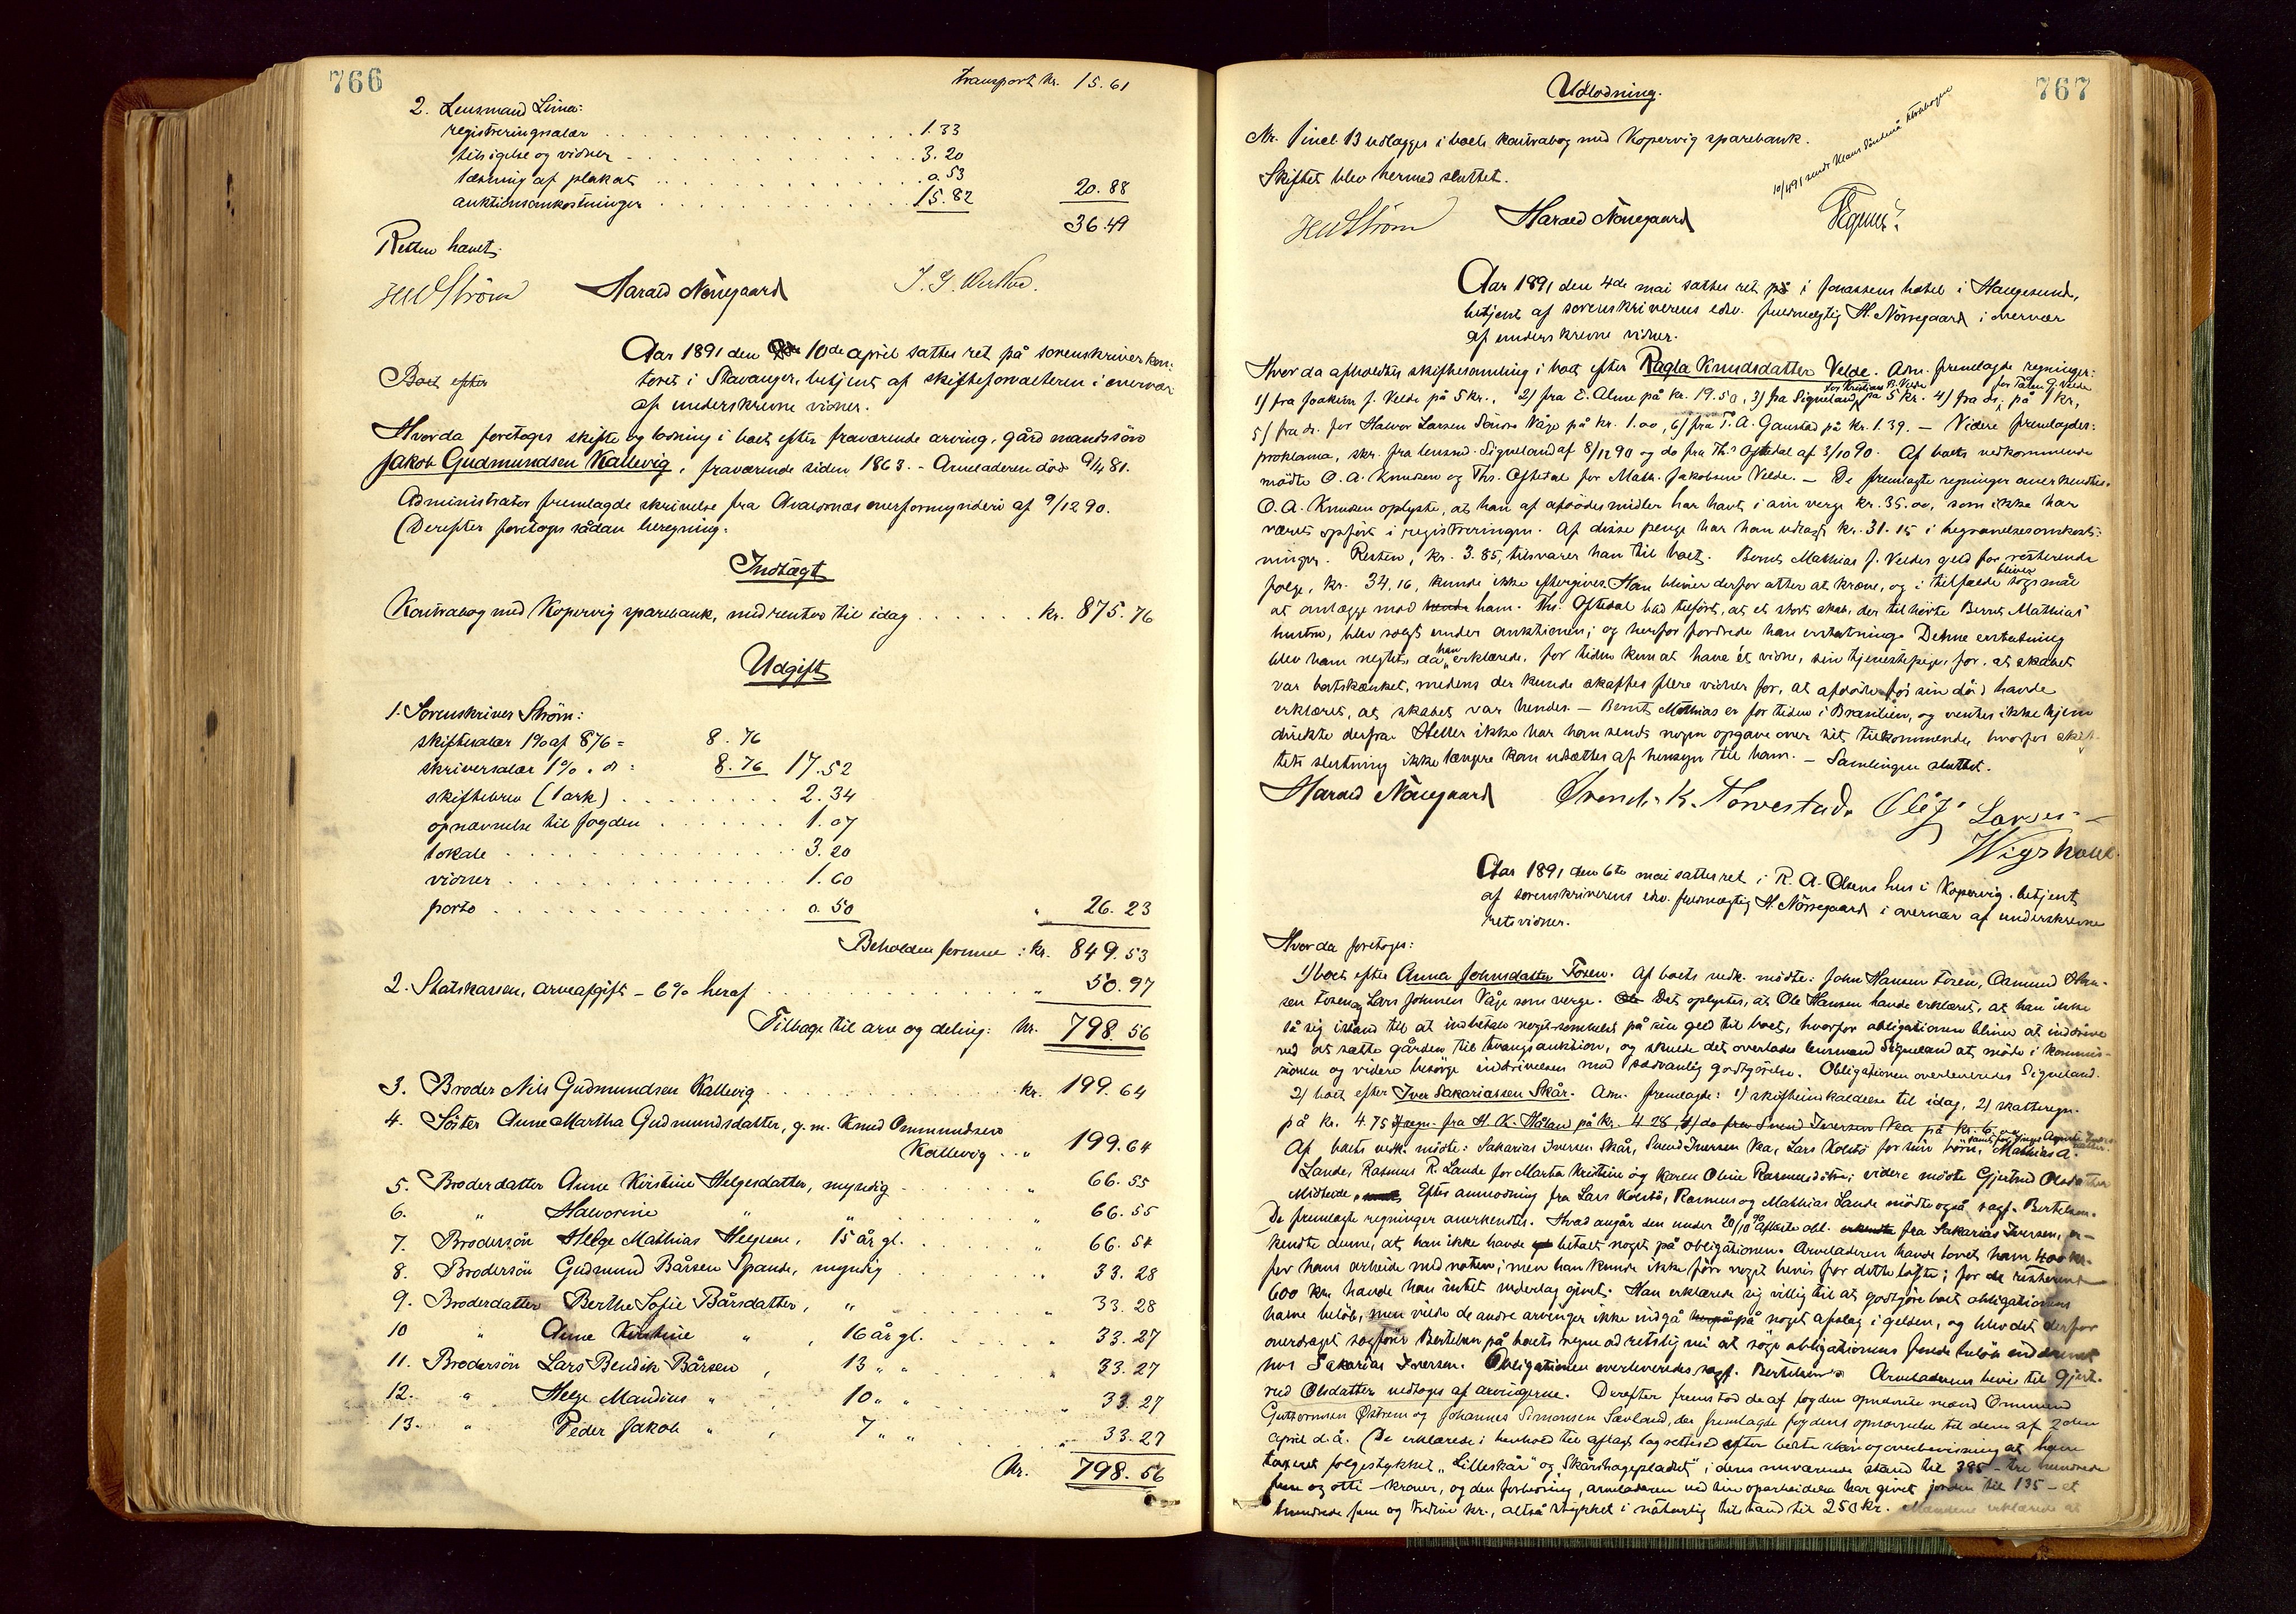 766
Transport kr. 15.61
2. Lensmand Lima:
registreringssalær . . . 1.33
tilsigelse og vidner . . . 3.20
læsning af plakat . . . 0.53
auktionsomkostninger . . . 15.82 20.88
36.49
Retten hævet.
HW Ström Harald Nörregaard
Aar 1891 den 10de april sattes ret på sorenskriverkon-
Boet efter
toret i Stavanger, betjent af skifteforvalteren i overvær
af underskrevne vidner.
Hvorda foretoges skifte og lodning i boet efter fraværende arving, gårdmandssön
Jakob Gudmundsen Kallevig, fraværende siden 1863. - Arveladeren död 9/4 81.
Administrator fremlagde skrivelse fra Avaldsnæs overformynderi af 9/12 90.
Derefter foretoges sådan beregning:
Indtægt
Kontrabog med Kopervig sparebank, med renter til idag . . . kr. 875.76
Udgift
1. Sorenskriver Ström:
skiftesalær 1% af 876 = 8.76
skriversalær 1% " do = 8.76 17.52
skiftebrev (1 ark) . . . 2.34
opnævnelse til fogden . . . 1.07
lokale . . . 3.20
vidner . . . 1.60
porto . . . 0.50 " 26.23
Beholden formue : kr. 849.53
2. Statskassen, arveafgift - 6% heraf . . . " 50.97
Tilbage til arv og deling: kr. 798.56
3. Broder Nils Gudmundsen Kallevig . . . kr. 199.64
4. Söster Anne Martha Gudmundsdatter, g.m. Knud Ommundsen
Kallevig . . " 199.64
5. Broderdatter Anne Kirstine Helgesdatter, myndig . . . " 66.55
6. " Halvorine " " . . . " 66.55
7. Brodersön Helge Mathias Helgesen, 15 år gl. . . . " 66.54
8. Brodersön Gudmund Bårsen Spande, myndig . . . " 33.28
9. Broderdatter Berthe Sofie Bårsdatter, " . . . " 33.28
10 " Anne Kirstine " , 16 år gl. . . . 33.27
11. Brodersön Lars Bendik Bårsen , 13 " " . . . " 33.27
12. " Helge Maudius " , 10 " " . . . " 33.27
13. " Peder Jakob " , 7 " " . . . " 33.27
Kr. 798.56
767
Udlodning.
Nr. 1 incl. 13 udlægges i boets kontrabog med Kopervig sparebank.
10/4 91 sendt Klaus
Skiftet blev hermed sluttet.
HW Ström Harald Nörregaard
Aar 1891 den 4de mai sattes ret på i Jonassens hotel i Haugesund,
betjent af sorenskriverens edsv. fuldmægtig H. Nörregaard i overvær
af underskrevne vidner.
Hvorda afholdtes skiftesamling i boet efter Ragla Knudsdatter Velde. Adm. fremlagde regninger:
for Kristian B. Velde for Tålen G. Velde
1) fra Joakim J. Velde på 5 kr., 2) fra E. Alme på kr. 19.50, 3) fra Sigueland på 5 kr. 4) fra ds. på 1 kr,
5) fra ds. for Halvor Larsen Söndre Våge på kr. 1.00, 6) fra T. A. Gaustad på kr. 1.39. — Videre fremlagdes:
proklama, skr. fra lensmd. Sigueland af 8/12 90 og do fra Ths. Oftedal af 3/10 90. Af boets vedkommende
mödte O. A. Knudsen og Ths. Oftedal for Math. Jakobsen Velde. — De fremlagte regninger anerkendtes.
O. A. Knudsen oplyste, at han af afdödes midler har havt i sin verge kr. 35.00, som ikke har
været opfört i registreringen. Af disse penge har han udlagt kr. 31.15 i begravelsesomkost-
ninger. Resten, kr. 3.85, tilsvarer han til boet. Bernt Mathias J. Veldes gæld for resterende
folge, kr. 34,16, kunde ikke eftergives. Han bliver derfor atter at kræve, og i tilfælde bliver sögsmål
at anlægge mod hende ham. Ths. Oftedal bad tilfört, at et stort skab, der tilhörte Bernt Mathias'
hustru, blev solgt under auktionen; og herfor fordrede han erstatning. Denne erstatning
blev ham negtet, da han erklærede, for tiden kun at have ét vidne, sin tjenestepige, for, at skabet
var bortskænket, medens der kunde skaffes flere vidner for, at afdöde för sin död havde
erklæret, at skabet var hendes. — Bernt Mathias er for tiden i Brasilien, og ventes ikke hjem
direkte derfra. Heller ikke har han sendt nogen opgave over sit tilkommende, hvorfor skif-
tets slutning ikke længere kan udsættes af hensyn til ham. — Samlingen sluttet.
Harald Nörregaard Svend K. Torvestad. Ole J. Larsen
Aar 1891 den 6te mai sattes ret i R. A. Olsens hus i Kopervig, betjent
af sorenskriverens edsv. fuldmægtig H. Nörregaard i overvær af underskrevne
retsvidner.
Hvorda foretoges:
1) boet efter Anna Johnsdatter Fosen. Af boets vedk. mödte: John Hansen Fosen, Osmund Han-
sen Fosen og Lars Johnsen Våge som verge. Det oplystes, at Ole Hansen havde erklæret, at han ikke
så sig istand til at indbetale noget somhelst på sin gæld til boet, hvorfor obligationen bliver at inddrive
ved at sætte gården til tvangsauktion, og skulde det overlades lensmand Sigueland at möde i kommis-
sionen og videre besörge inddrivelsen mod sædvanlig godtgörelse. Obligationen overleveredes Sigueland.
2) boet efter Iver Sakariassen Skår. Adm. fremlagde: 1) skifteindkaldelse til idag, 2) skatteregn.
på kr. 4.75 3) regn. fra H. K. Håland på kr. 4.28, 4) do fra Svend Iversen Vea på kr.
Af boets vedk. mödte: Sakarias Iversen Skår, Svend Iversen Vea, Lars Kolstö for sin börn, Mathias A.
Lande, Rasmus R. Lande for Marta Kristine og Karen Oline Rasmusdötre; videre mödte Gjertrud Olsdatter
Midtvede. Efter anmodning fra Lars Kolstö, Rasmus og Mathias Lande mödte også sagf. Bertelsen.
De fremlagte regninger anerkendtes. Hvad angår den under 20/10 90 afförte obl. erkendte fra Sakarias Iversen, er-
kendte denne, at han ikke havde betalt noget på obligationen. Arveladeren havde lovet ham 400 kr.
for hans arbeide ved noten; men han kunde ikke före noget bevis for dette löfte; for de resterende
600 kr. havde han intet vederlag givet. Han erklærede sig villig til at godtgjöre boet obligationens
halve belöb, men vilde de andre arvinger ikke indgå på noget afslag i gælden, og blev det derfor
overdraget sagförer Bertelsen på boets vegne ad retslig vei at söge obligationens fulde belöb inddrevet
hos Sakarias Iversen. Obligationen overleveredes sagf. Bertelsen. Arveladerens bevis til Gjert-
rud Olsdatter vedtoges af arvingerne. Derefter fremstod de af fogden opnævnte mænd Ommund
Guttormsen Østrem og Johannes Simonsen Sævland, der fremlagde fogdens opnævnelse til dem af 2den
april d.å. De erklærede i henhold til aflagt lagrettesed efter bedste skön og overbevisning at have
taxeret folgestykket "Lilleskår" og "Skårshagepladset" i deres nuværende stand til 385 - tre hundrede
fem og otti - kroner, og den forbedring, arveladeren ved sin oparbeidelse har givet jorden til 135 - et
hundrede fem og tredive kr., altså stykket i naturlig tilstand til 250 kr. Mændene erklærede at